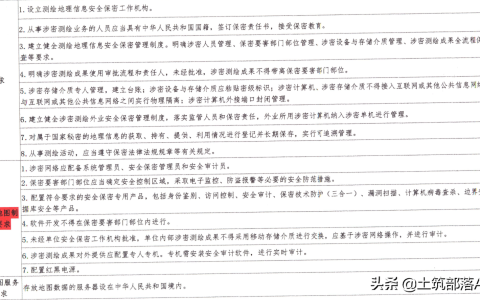 1. 设立测绘地理信息安全保密工作机构。
2. 从事涉密测绘业务的人员应当具有中华人民共和国国籍，签订保密责任书，接受保密教育。
3. 建立健全测绘地理信息安全保密管理制度。明确涉密人员管理、保密要害部门部位管理、涉密设备与存储介质管理、涉密测绘成果全流程保
查等要求。
4. 明确涉密测绘成果使用审批流程和责任人，未经批准，涉密测绘成果不得带离保密要害部门部位。
求
5. 涉密存储介质专人管理，建立台账；涉密设备与存储介质应粘贴密级标识；涉密计算机、涉密存储介质不得接入互联网或其他公共信息网络
与互联网或其他公共信息网络之间实行物理隔离；涉密计算机外接端口封闭管理。
6. 建立健全涉密测绘外业安全保密管理制度，落实监管人员和保密责任，外业所用涉密计算机纳入涉密单机进行管理。
7. 对属于国家秘密的地理信息的获取、持有、提供、利用情况进行登记并长期保存，实行可追溯管理。
8. 从事测绘活动，应当遵守保密法律法规规章等有关规定。
1. 涉密网络应配备系统管理员、安全保密管理员和安全审计员。
2. 保密要害部门部位应当确定安全控制区域，采取电子监控、防盗报警等必要的安全防范措施。
3. 配置符合要求的安全保密专用产品，包括身份鉴别、访问控制、安全审计、保密技术防护（三合一）、漏洞扫描、计算机病毒查杀、边界
据库安全等产品。
地图制
要求
4. 软件开发不得在保密要害部门部位内进行。
5. 未经单位安全保密工作机构批准，单位内部涉密测绘成果不得采用移动存储介质进行交换，应基于涉密网络操作，并进行审计。
6. 涉密测绘成果对外提供应配置专人专机。专机需安装安全审计软件，进行实时审计。
7. 配置红黑电源。
图服务
求
存放地图数据的服务器设在中华人民共和国境内。
头条 @土筑部落A